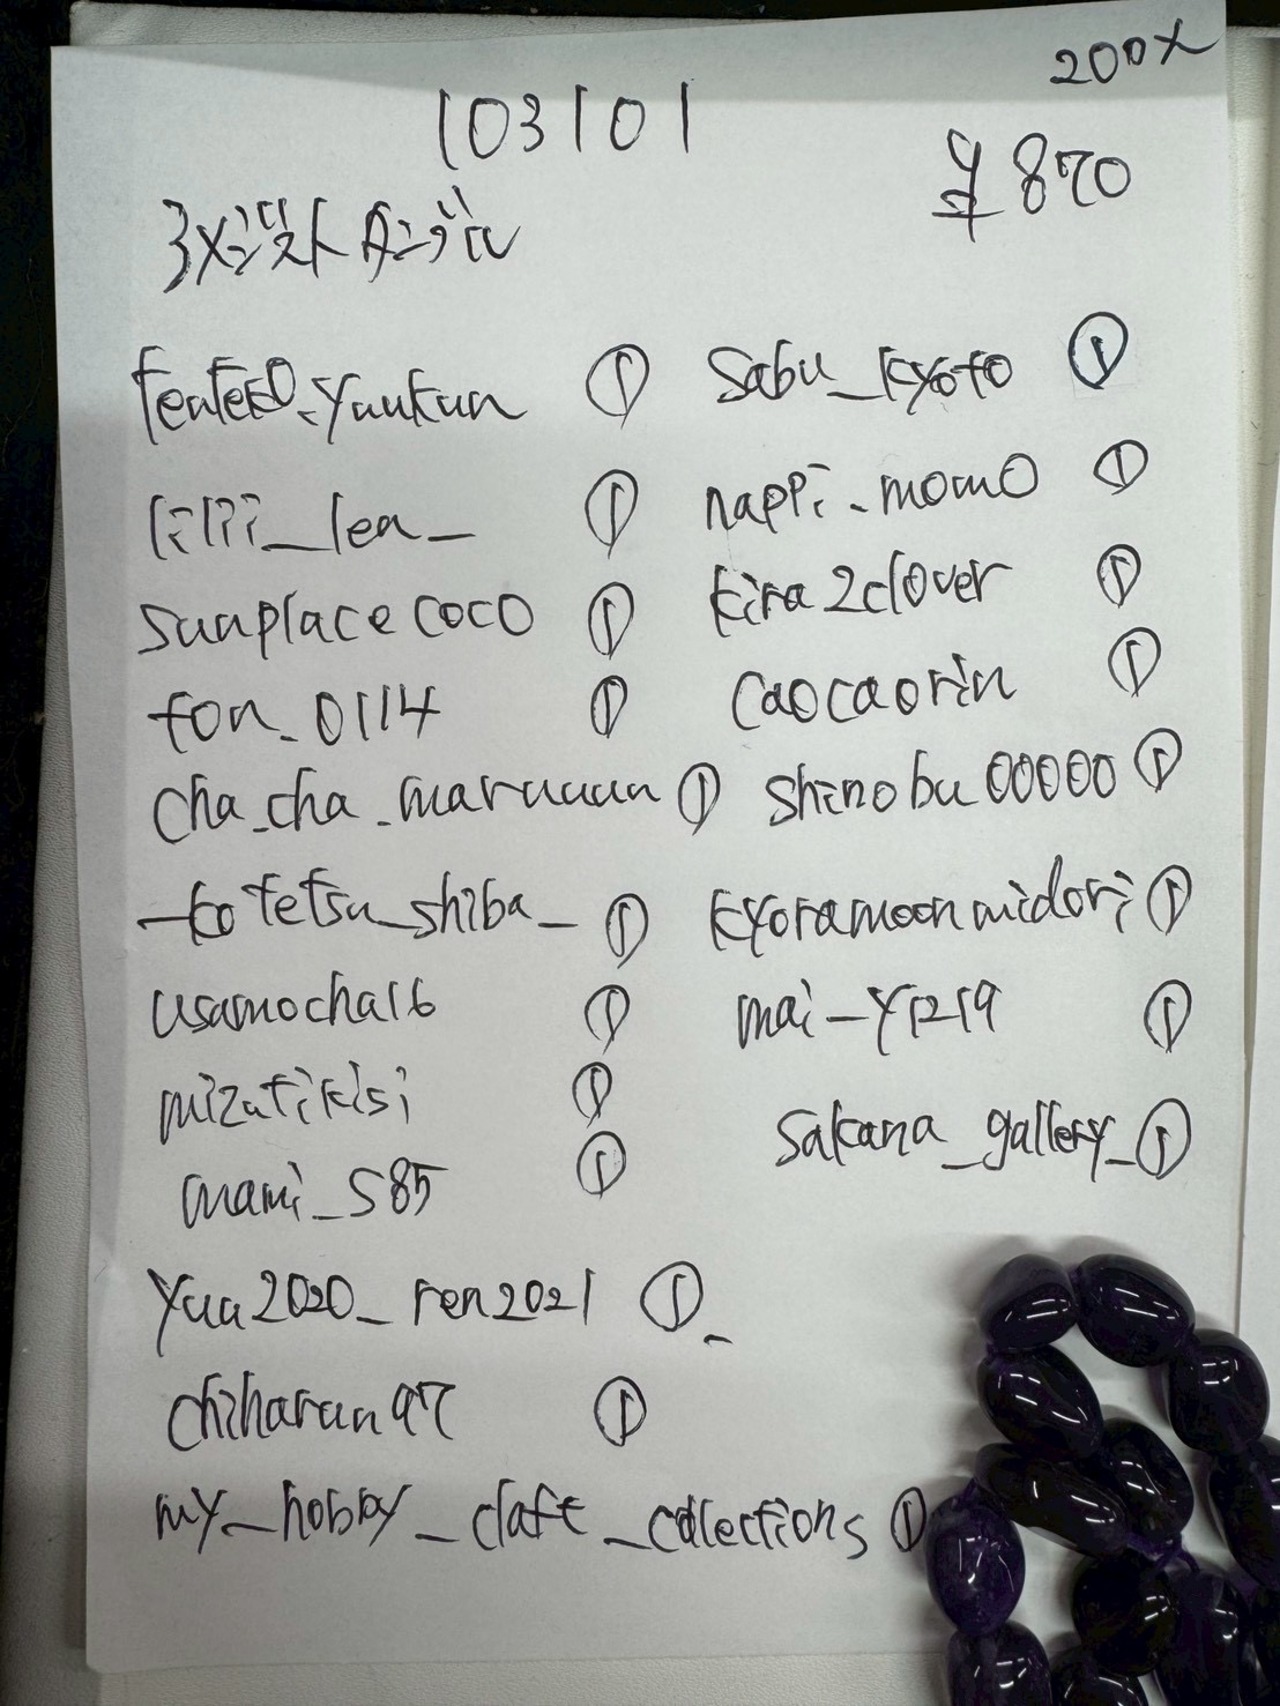 200x
103101
¥870
tenteko_yuukun ①
lilii_lea_ ①
sunplacecoco ①
fon_0114 ①
cha_cha_maruuun ①
_kotetsu_shiba_ ①
usamocha16 ①
mizutikisi ①
mami_S85 ①
yuu2020_ren2021 ①_
chiharun97 ①
my_hobby_claft_collections ①
Sabu_kyoto ①
nappi_momo ①
kira2clover ①
caocaorin ①
shinobu00000 ①
kyoramoonmidori ①
mai_y1219 ①
Sakana_gallery_ ①